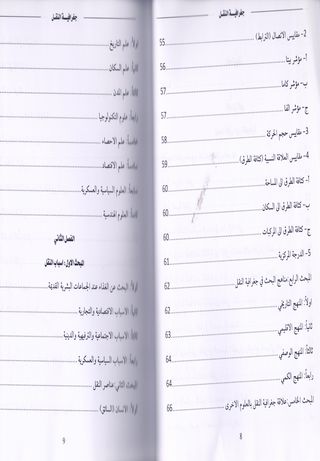 جغرافيــة النقــل
2- مقاييس الاتصال (الترابط) 55
أ- مؤشر بيتا 56
ب- مؤشر كاما 56
ج- مؤشر الفا 57
3- مقاييس حجم الحركة 58
4- مقاييس العلاقة النسبية (كثافة الطرق) 59
أ- كثافة الطرق الى المساحة 60
ب- كثافة الطرق الى السكان 60
ج- كثافة الطرق الى المركبات 60
5- الدرجة المركزية 61
المبحث الرابع: مناهج البحث في جغرافية النقل 62
اولاً: المنهج التاريخي 62
ثانياً: المنهج الاقليمي 63
ثالثاً: المنهج الوصفي 64
رابعاً: المنهج الكمي 64
المبحث الخامس: علاقة جغرافية النقل بالعلوم الاخرى 66
8
جغرافيــة النقــل
اولاً: علم التاريخ
ثانياً: علم السكان
ثالثاً: علم المدن
رابعاً: علوم التكنولوجيا
خامساً: علم الاحصاء
علم الاقتصاد
العلوم السياسية والعسكرية
العلوم الهندسية
الفصل الثاني
المبحث الاول: اسباب النقل
اولاً: البحث عن الغذاء عند الجماعات البشرية القديمة
ثانياً: الاسباب الاقتصادية والتجارية
ثالثاً: الاسباب الاجتماعية والترفيهية والدينية
رابعاً: الاسباب السياسية والعسكرية
المبحث الثاني: عناصر النقل
اولاً: الانسان (السائق)
9